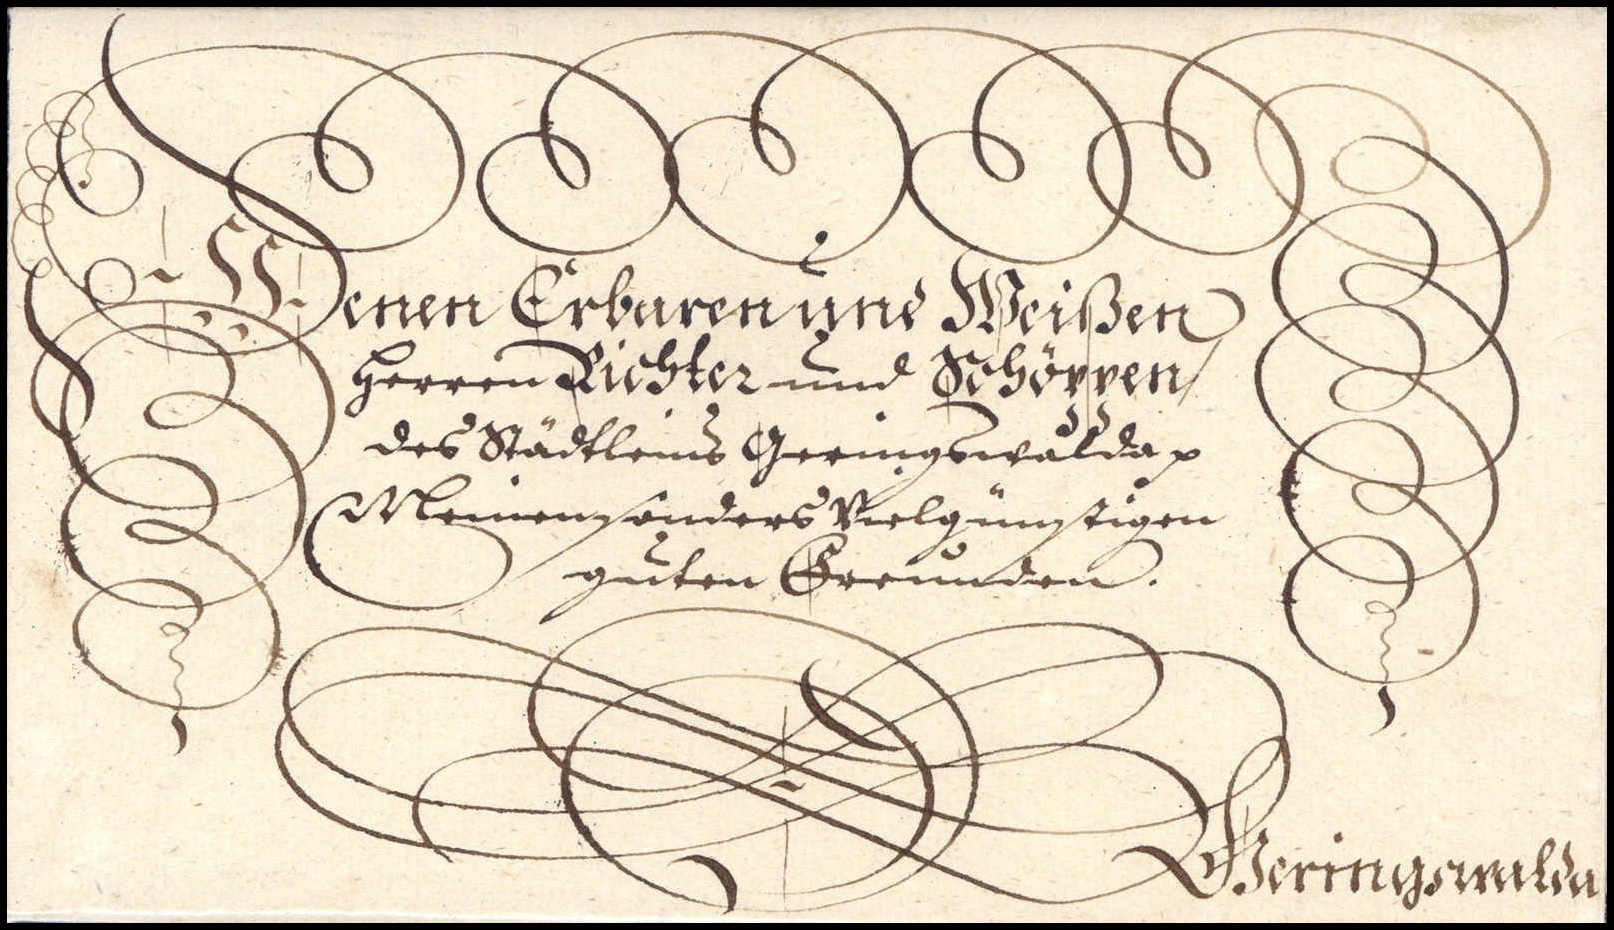 Denen Erbaren und Weißen
Herren Richter und Schöppen
des Städtleins Geringswalda
Meinen sonders Vielgünstigen
guten Freunden.
Geringswalda